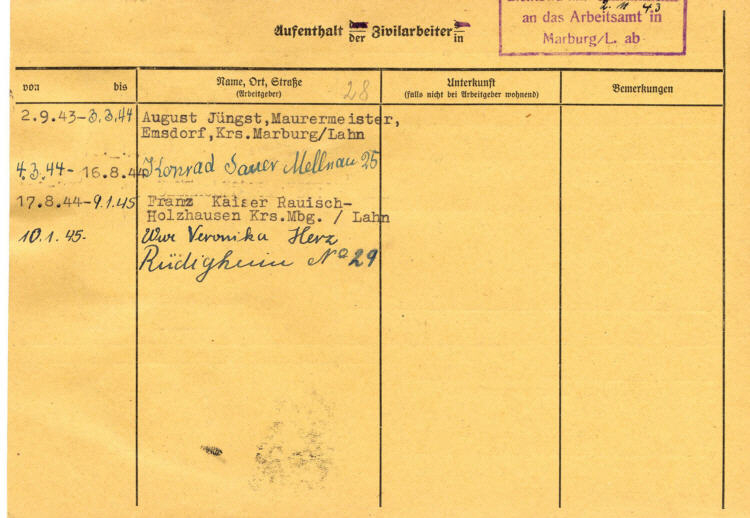 an das Arbeitsamt in
Marburg/L. ab
Aufenthalt der Zivilarbeiter in
von bis
Name, Ort, Straße
(Arbeitgeber)
28
Unterkunft
(falls nicht bei Arbeitgeber wohnend)
Bemerkungen
2.9.43-3.3.44 August Jüngst,Maurermeister,
Emsdorf,Krs.Marburg/Lahn
4.3.44- 16.8.44 Konrad Sauer Mellnau 25
17.8.44-9.1.45 Franz Kaiser Rauisch-
Holzhausen Krs.Mbg. / Lahn
10.1.45. Wwe Veronika Herz
Rüdigheim No 29